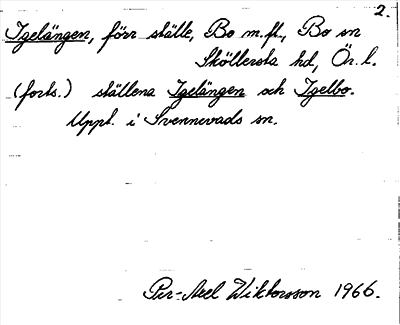 2.
Igelängen, förr ställe, Bo m.fl., Bo sn
Sköllersta hd, Ör. l.
(forts.) ställena Igelängen och Igelbo.
Uppt. i Svennevads sn.
Per-Axel Wiktorsson 1966.